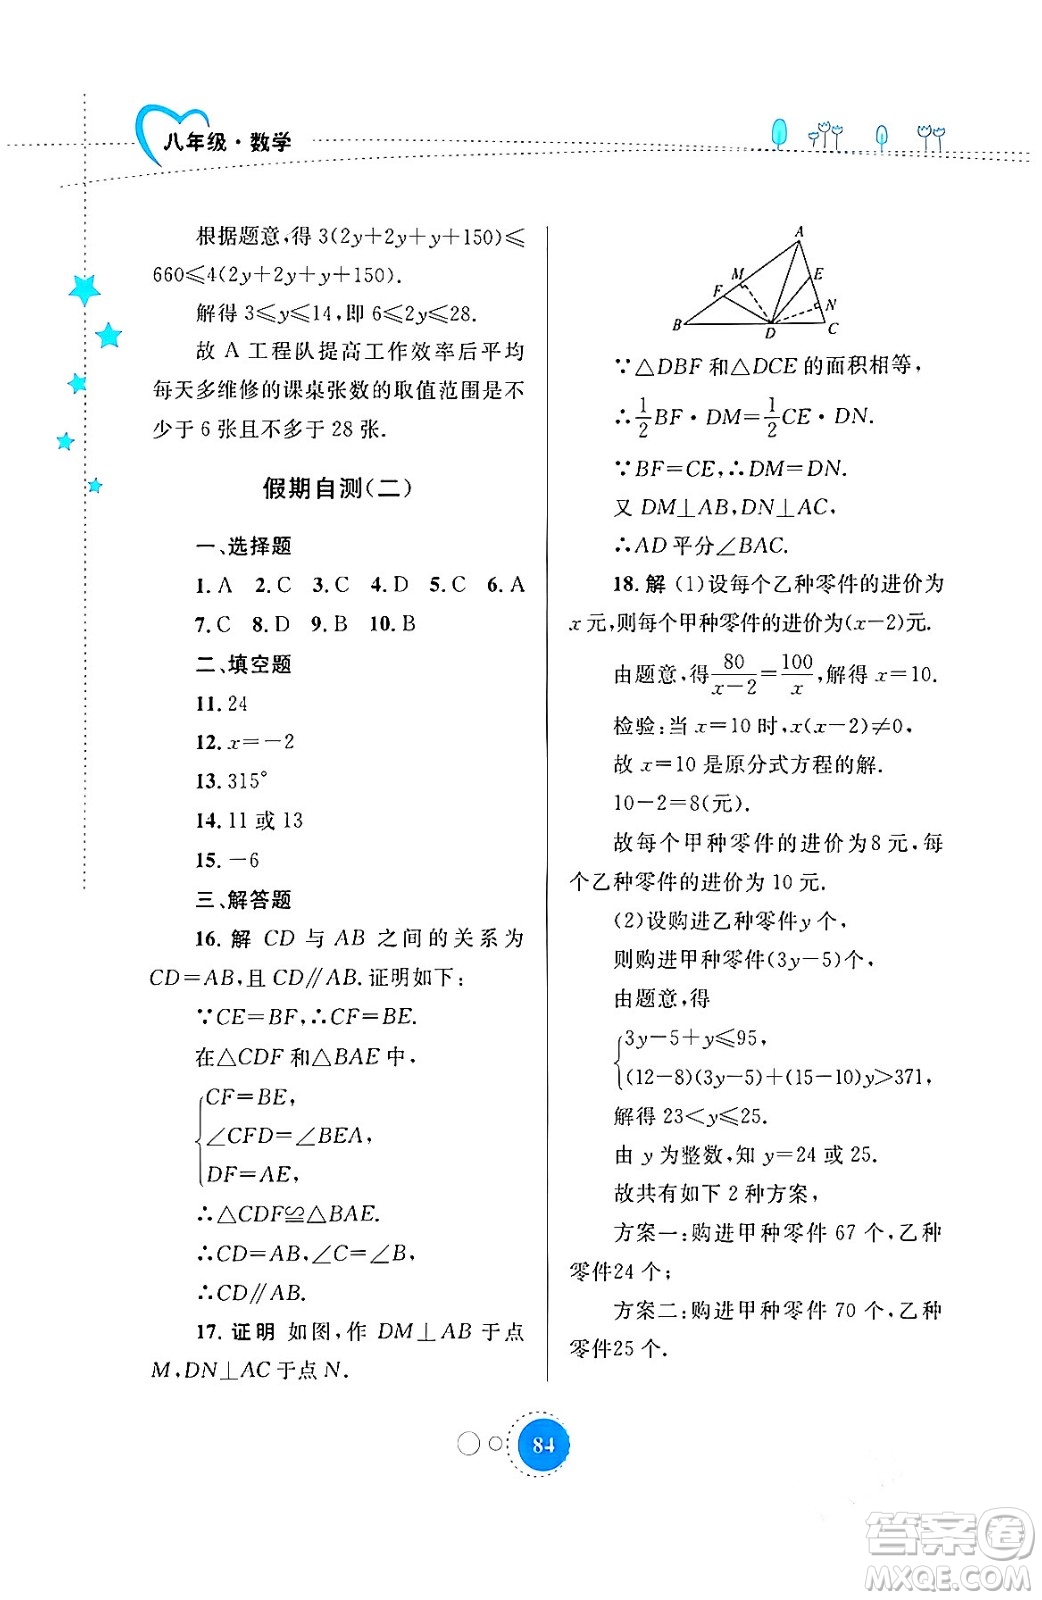 八年级·数学
根据题意,得 3(2y+2y+y+150)≤
660≤4(2y+2y+y+150).
解得 3≤y≤14,即 6≤2y≤28.
故 A 工程队提高工作效率后平均
每天多维修的课桌张数的取值范围是不
少于 6 张且不多于 28 张.
假期自测(二)
一、选择题
1. A 2. C 3. C 4. D 5. C 6. A
7. C 8. D 9. B 10. B
二、填空题
11. 24
12. x=-2
13. 315°
14. 11 或 13
15. -6
三、解答题
16. 解 CD 与 AB 之间的关系为
CD=AB,且 CD∥AB.证明如下:
∵CE=BF,∴CF=BE.
在△CDF 和△BAE 中,
CF=BE,
∠CFD=∠BEA,
DF=AE,
∴△CDF≌△BAE.
∴CD=AB,∠C=∠B,
∴CD∥AB.
17. 证明 如图,作 DM⊥AB 于点
M,DN⊥AC于点 N.
A
M
E
F
N
B
D
C
∵△DBF 和△DCE 的面积相等,
∴1/2 BF·DM=1/2 CE·DN.
∵BF=CE,∴DM=DN.
又 DM⊥AB,DN⊥AC,
∴AD 平分∠BAC.
18. 解 (1)设每个乙种零件的进价为
x 元,则每个甲种零件的进价为(x-2)元.
由题意,得 80/(x-2)=100/x,解得 x=10.
检验:当 x=10 时,x(x-2)≠0,
故 x=10 是原分式方程的解.
10-2=8(元).
故每个甲种零件的进价为8 元,每
个乙种零件的进价为 10 元.
(2)设购进乙种零件y 个,
则购进甲种零件(3y-5)个,
由题意,得
3y-5+y≤95,
(12-8)(3y-5)+(15-10)y>371,
解得 23<y≤25.
由 y 为整数,知 y=24 或 25.
故共有如下 2 种方案,
方案一:购进甲种零件 67 个,乙种
零件24 个;
方案二:购进甲种零件 70 个,乙种
零件25 个.
84
答案卷
MXQE.COM